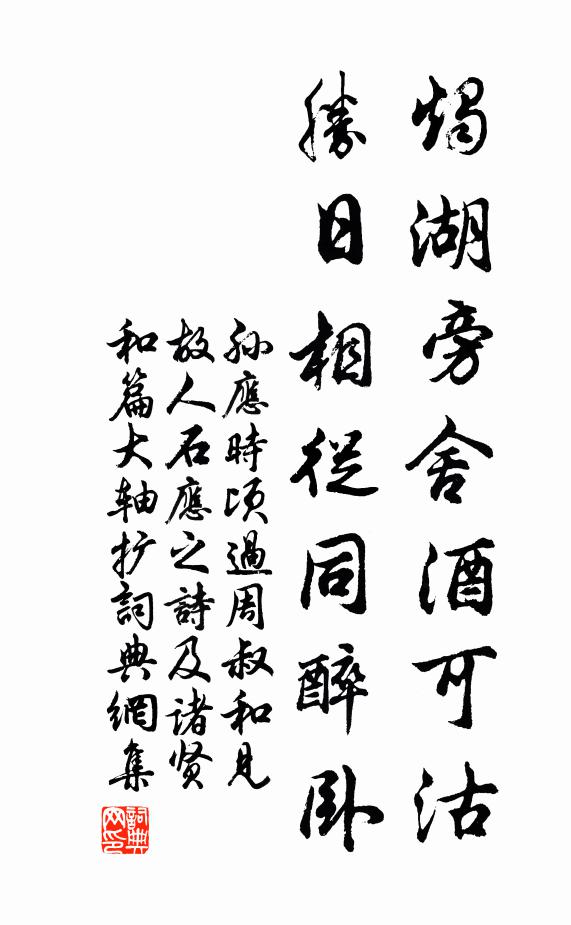 燭湖旁舍酒可沽
勝日相從同醉卧
孫應時頃過周叔和見
故人石應之詩及諸贤
和篇大轴扩詞典網集
詞典
网印